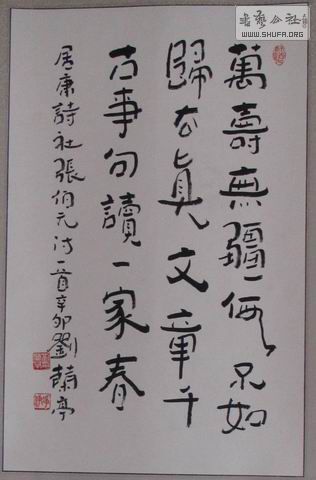 萬壽無疆一夜 不如
歸去真 文章千
古事句讀一家春
居康詩社張伯元诗一首辛卯劉 亭
書藝公社
WWW.SHUFA.ORG